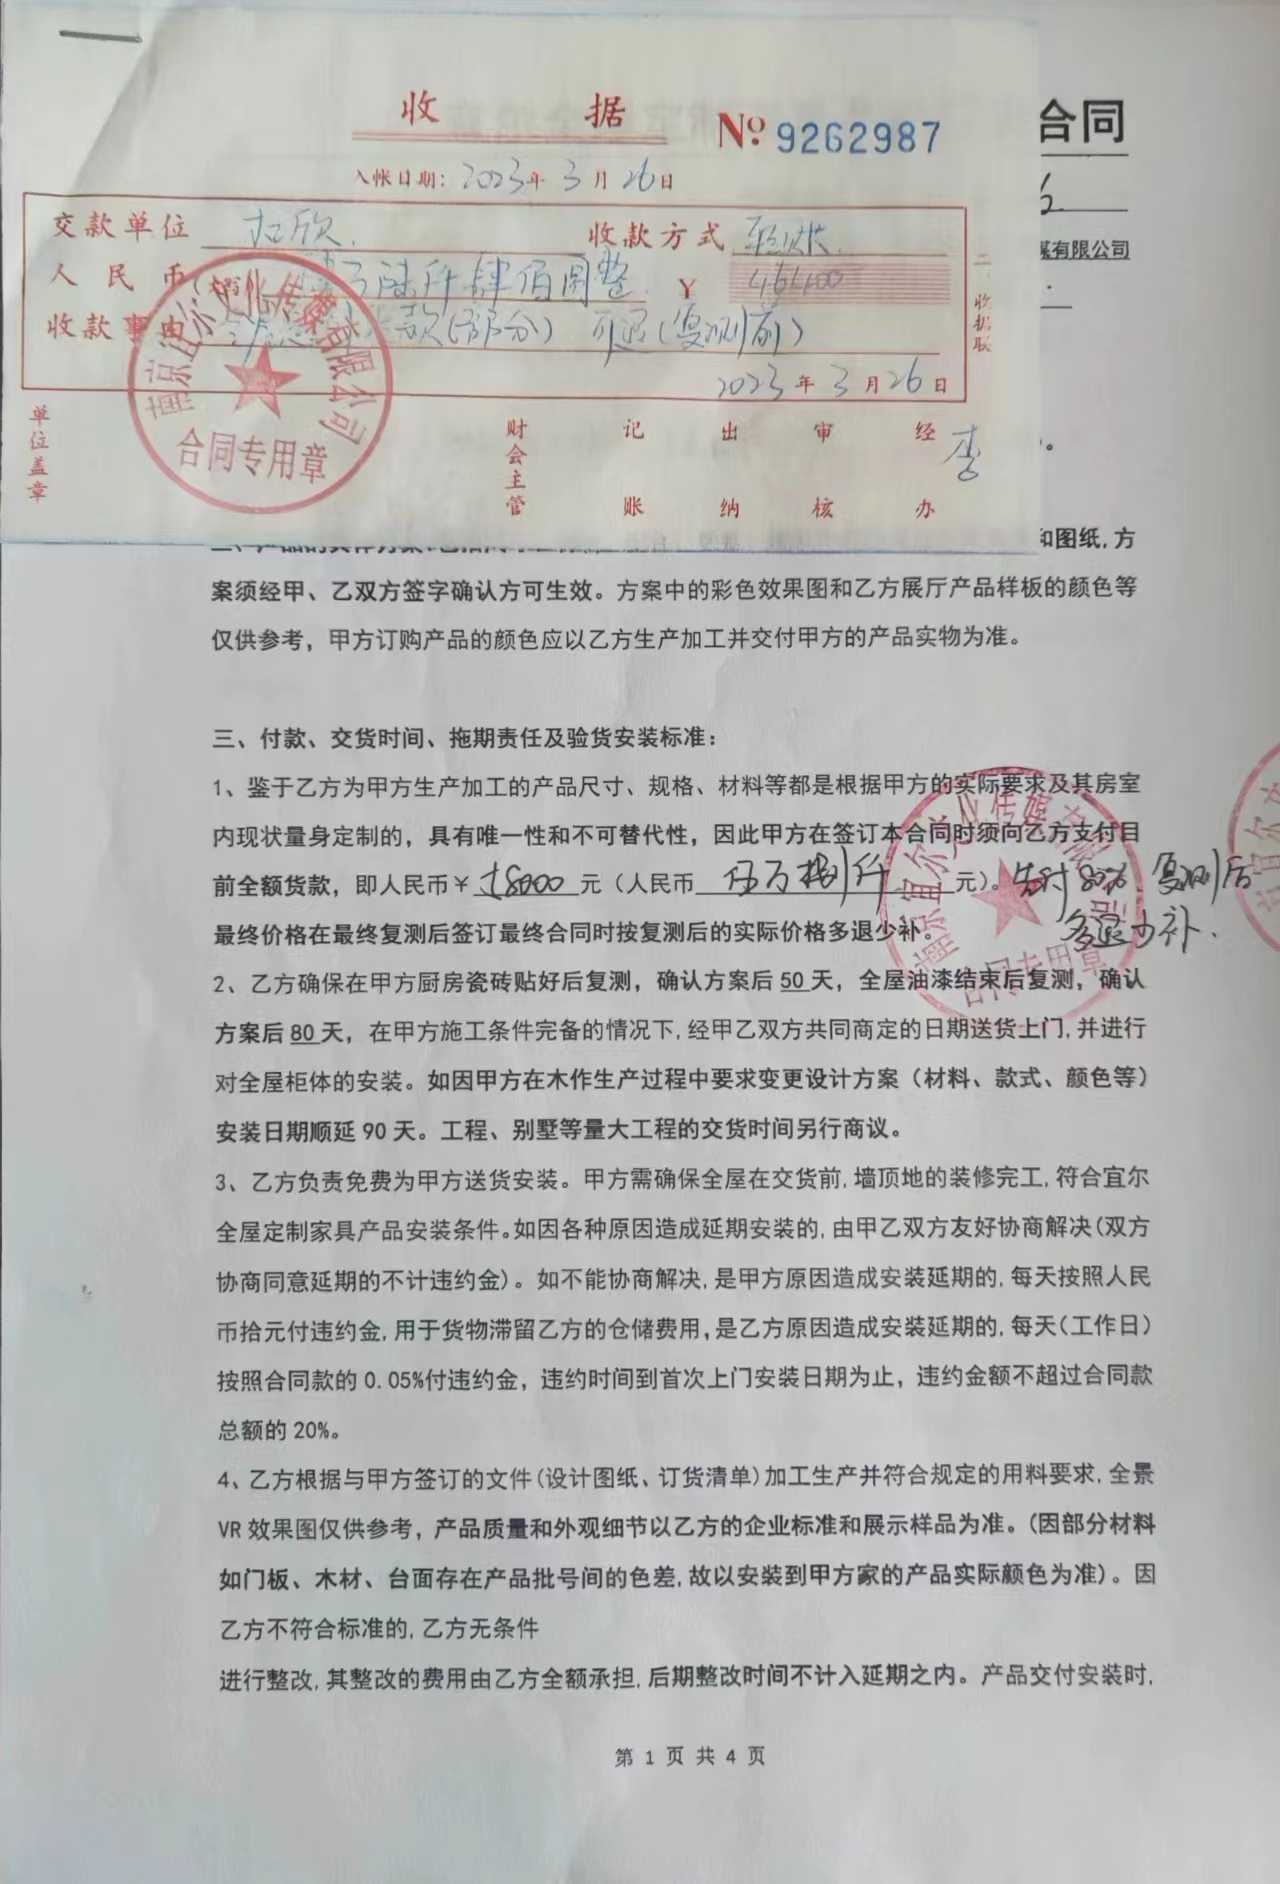 收 据
№ 9262987
合同
入帐日期: 2023年3月26日
交款单位 收款方式
煤有限公司
人民币 万陆仟肆佰圆整 ¥ 46400
收款事由 款(部分) 可退(复测前)
二、收据联
2023年3月26日
南京宜尔文化传媒有限公司
合同专用章
单位盖章 财会主管 记账 出纳 审核 经办 李
和图纸,方
案须经甲、乙双方签字确认方可生效。方案中的彩色效果图和乙方展厅产品样板的颜色等
仅供参考，甲方订购产品的颜色应以乙方生产加工并交付甲方的产品实物为准。
三、付款、交货时间、拖期责任及验货安装标准：
1、鉴于乙方为甲方生产加工的产品尺寸、规格、材料等都是根据甲方的实际要求及其房室
内现状量身定制的，具有唯一性和不可替代性，因此甲方在签订本合同时须向乙方支付目
前全额货款，即人民币¥ 58000 元（人民币 伍万捌仟 元）。先付80%、复测后
最终价格在最终复测后签订最终合同时按复测后的实际价格多退少补。 多退少补.
南京宜尔文化传媒有限公司
合同专用章
2、乙方确保在甲方厨房瓷砖贴好后复测，确认方案后 50 天，全屋油漆结束后复测，确认
方案后 80 天，在甲方施工条件完备的情况下,经甲乙双方共同商定的日期送货上门,并进行
对全屋柜体的安装。如因甲方在木作生产过程中要求变更设计方案（材料、款式、颜色等）
安装日期顺延 90 天。工程、别墅等量大工程的交货时间另行商议。
3、乙方负责免费为甲方送货安装。甲方需确保全屋在交货前,墙顶地的装修完工,符合宜尔
全屋定制家具产品安装条件。如因各种原因造成延期安装的,由甲乙双方友好协商解决(双方
协商同意延期的不计违约金)。如不能协商解决,是甲方原因造成安装延期的,每天按照人民
币拾元付违约金,用于货物滞留乙方的仓储费用,是乙方原因造成安装延期的,每天(工作日)
按照合同款的 0.05%付违约金，违约时间到首次上门安装日期为止，违约金额不超过合同款
总额的 20%。
4、乙方根据与甲方签订的文件(设计图纸、订货清单)加工生产并符合规定的用料要求,全景
VR 效果图仅供参考，产品质量和外观细节以乙方的企业标准和展示样品为准。(因部分材料
如门板、木材、台面存在产品批号间的色差,故以安装到甲方家的产品实际颜色为准)。因
乙方不符合标准的,乙方无条件
进行整改,其整改的费用由乙方全额承担,后期整改时间不计入延期之内。产品交付安装时,
第 1 页 共 4 页